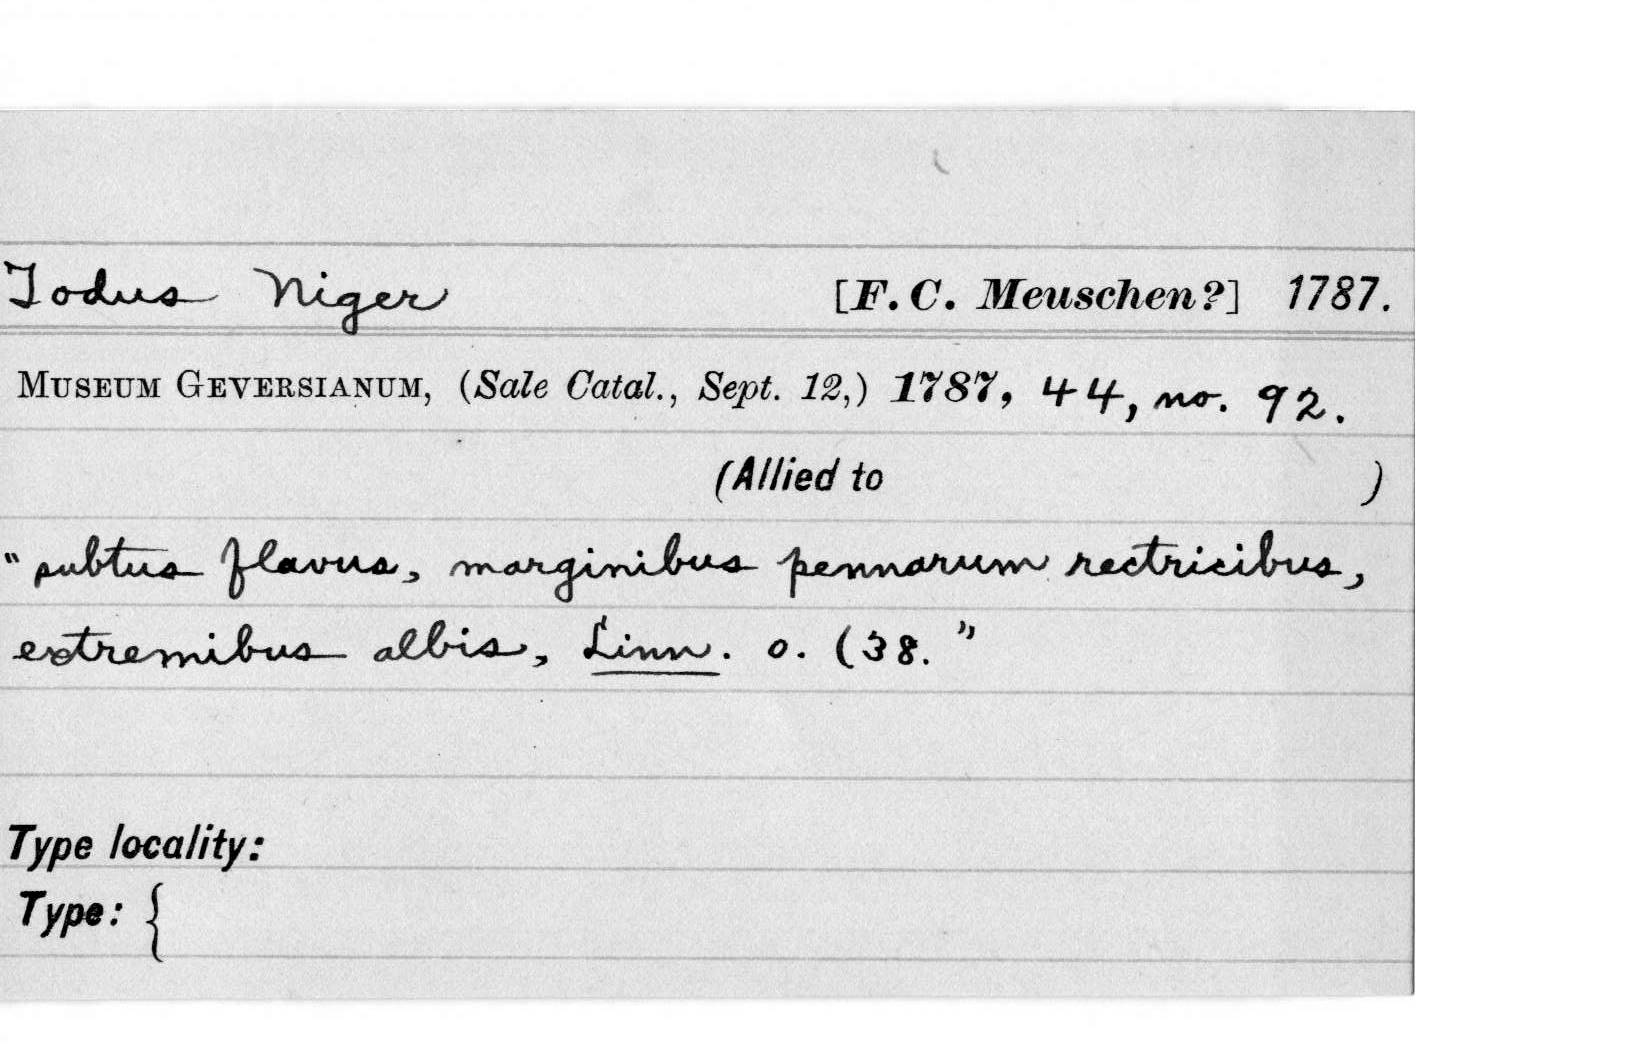 Todus Niger [F. C. Meuschen?] 1787.
MUSEUM GEVERSIANUM, (Sale Catal., Sept. 12,) 1787, 44, no. 92.
(Allied to )
"subtus flavus, marginibus pennarum rectricibus,
extremibus albis, Linn. o. (38."
Type locality:
Type: {